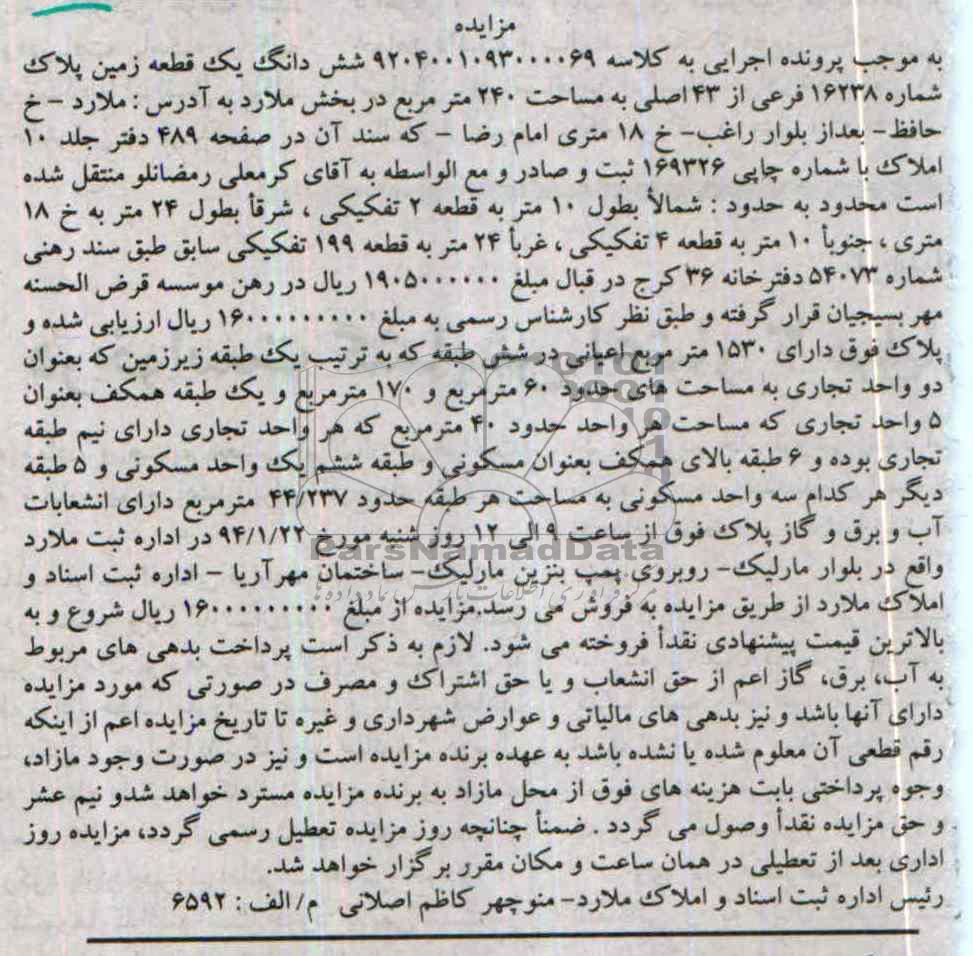 مزایده
به موجب پرونده اجرایی به کلاسه ۹۲۰۴۰۰۱۰۹۳۰۰۰۰۶۹ شش دانگ یک قطعه زمین پلاک
شماره ۱۶۲۳۸ فرعی از ۴۳ اصلی به مساحت ۲۴۰ متر مربع در بخش ملارد به آدرس : ملارد - خ
حافظ - بعداز بلوار راغب- خ ۱۸ متری امام رضا - که سند آن در صفحه ۴۸۹ دفتر جلد ۱۰
املاک با شماره چاپی ۱۶۹۳۲۶ ثبت و صادر و مع الواسطه به آقای کرمعلی رمضانلو منتقل شده
است محدود به حدود : شمالأ بطول ۱۰ متر به قطعه ۲ تفکیکی ، شرقأ بطول ۲۴ متر به خ ۱۸
متری ، جنوبأ ۱۰ متر به قطعه ۴ تفکیکی ، غربأ ۲۴ متر به قطعه ۱۹۹ تفکیکی سابق طبق سند رهنی
شماره ۵۴۰۷۳ دفترخانه ۳۶ کرج در قبال مبلغ ۱۹۰۵۰۰۰۰۰۰ ریال در رهن موسسه قرض الحسنه
مهر بسیجیان قرار گرفته و طبق نظر کارشناس رسمی به مبلغ ۱۶۰۰۰۰۰۰۰۰۰ ریال ارزیابی شده و
پلاک فوق دارای ۱۵۳۰ متر مربع اعیانی در شش طبقه که به ترتیب یک طبقه زیرزمین که بعنوان
دو واحد تجاری به مساحت های حدود ۶۰ مترمربع و ۱۷۰ مترمربع و یک طبقه همکف بعنوان
۵ واحد تجاری که مساحت هر واحد حدود ۴۰ مترمربع که هر واحد تجاری دارای نیم طبقه
تجاری بوده و ۶ طبقه بالای همکف بعنوان مسکونی و طبقه ششم یک واحد مسکونی و ۵ طبقه
دیگر هر کدام سه واحد مسکونی به مساحت هر طبقه حدود ۴۴/۲۳۷ مترمربع دارای انشعابات
آب و برق و گاز پلاک فوق از ساعت ۹ الی ۱۲ روز شنبه مورخ ۹۴/۱/۲۲ در اداره ثبت ملارد
ParsNamadData
واقع در بلوار مارلیک- روبروی پمپ بنزین مارلیک- ساختمان مهرآریا - اداره ثبت اسناد و
املاک ملارد از طریق مزایده به فروش می رسد.مزایده از مبلغ ۱۶۰۰۰۰۰۰۰۰۰ ریال شروع و به
بالاترین قیمت پیشنهادی نقدأ فروخته می شود. لازم به ذکر است پرداخت بدهی های مربوط
به آب، برق، گاز اعم از حق انشعاب و یا حق اشتراک و مصرف در صورتی که مورد مزایده
دارای آنها باشد و نیز بدهی های مالیاتی و عوارض شهرداری و غیره تا تاریخ مزایده اعم از اینکه
رقم قطعی آن معلوم شده یا نشده باشد به عهده برنده مزایده است و نیز در صورت وجود مازاد،
وجوه پرداختی بابت هزینه های فوق از محل مازاد به برنده مزایده مسترد خواهد شدو نیم عشر
و حق مزایده نقدأ وصول می گردد . ضمنأ چنانچه روز مزایده تعطیل رسمی گردد، مزایده روز
اداری بعد از تعطیلی در همان ساعت و مکان مقرر برگزار خواهد شد.
رئیس اداره ثبت اسناد و املاک ملارد- منوچهر کاظم اصلانی م/ الف : ۶۵۹۲